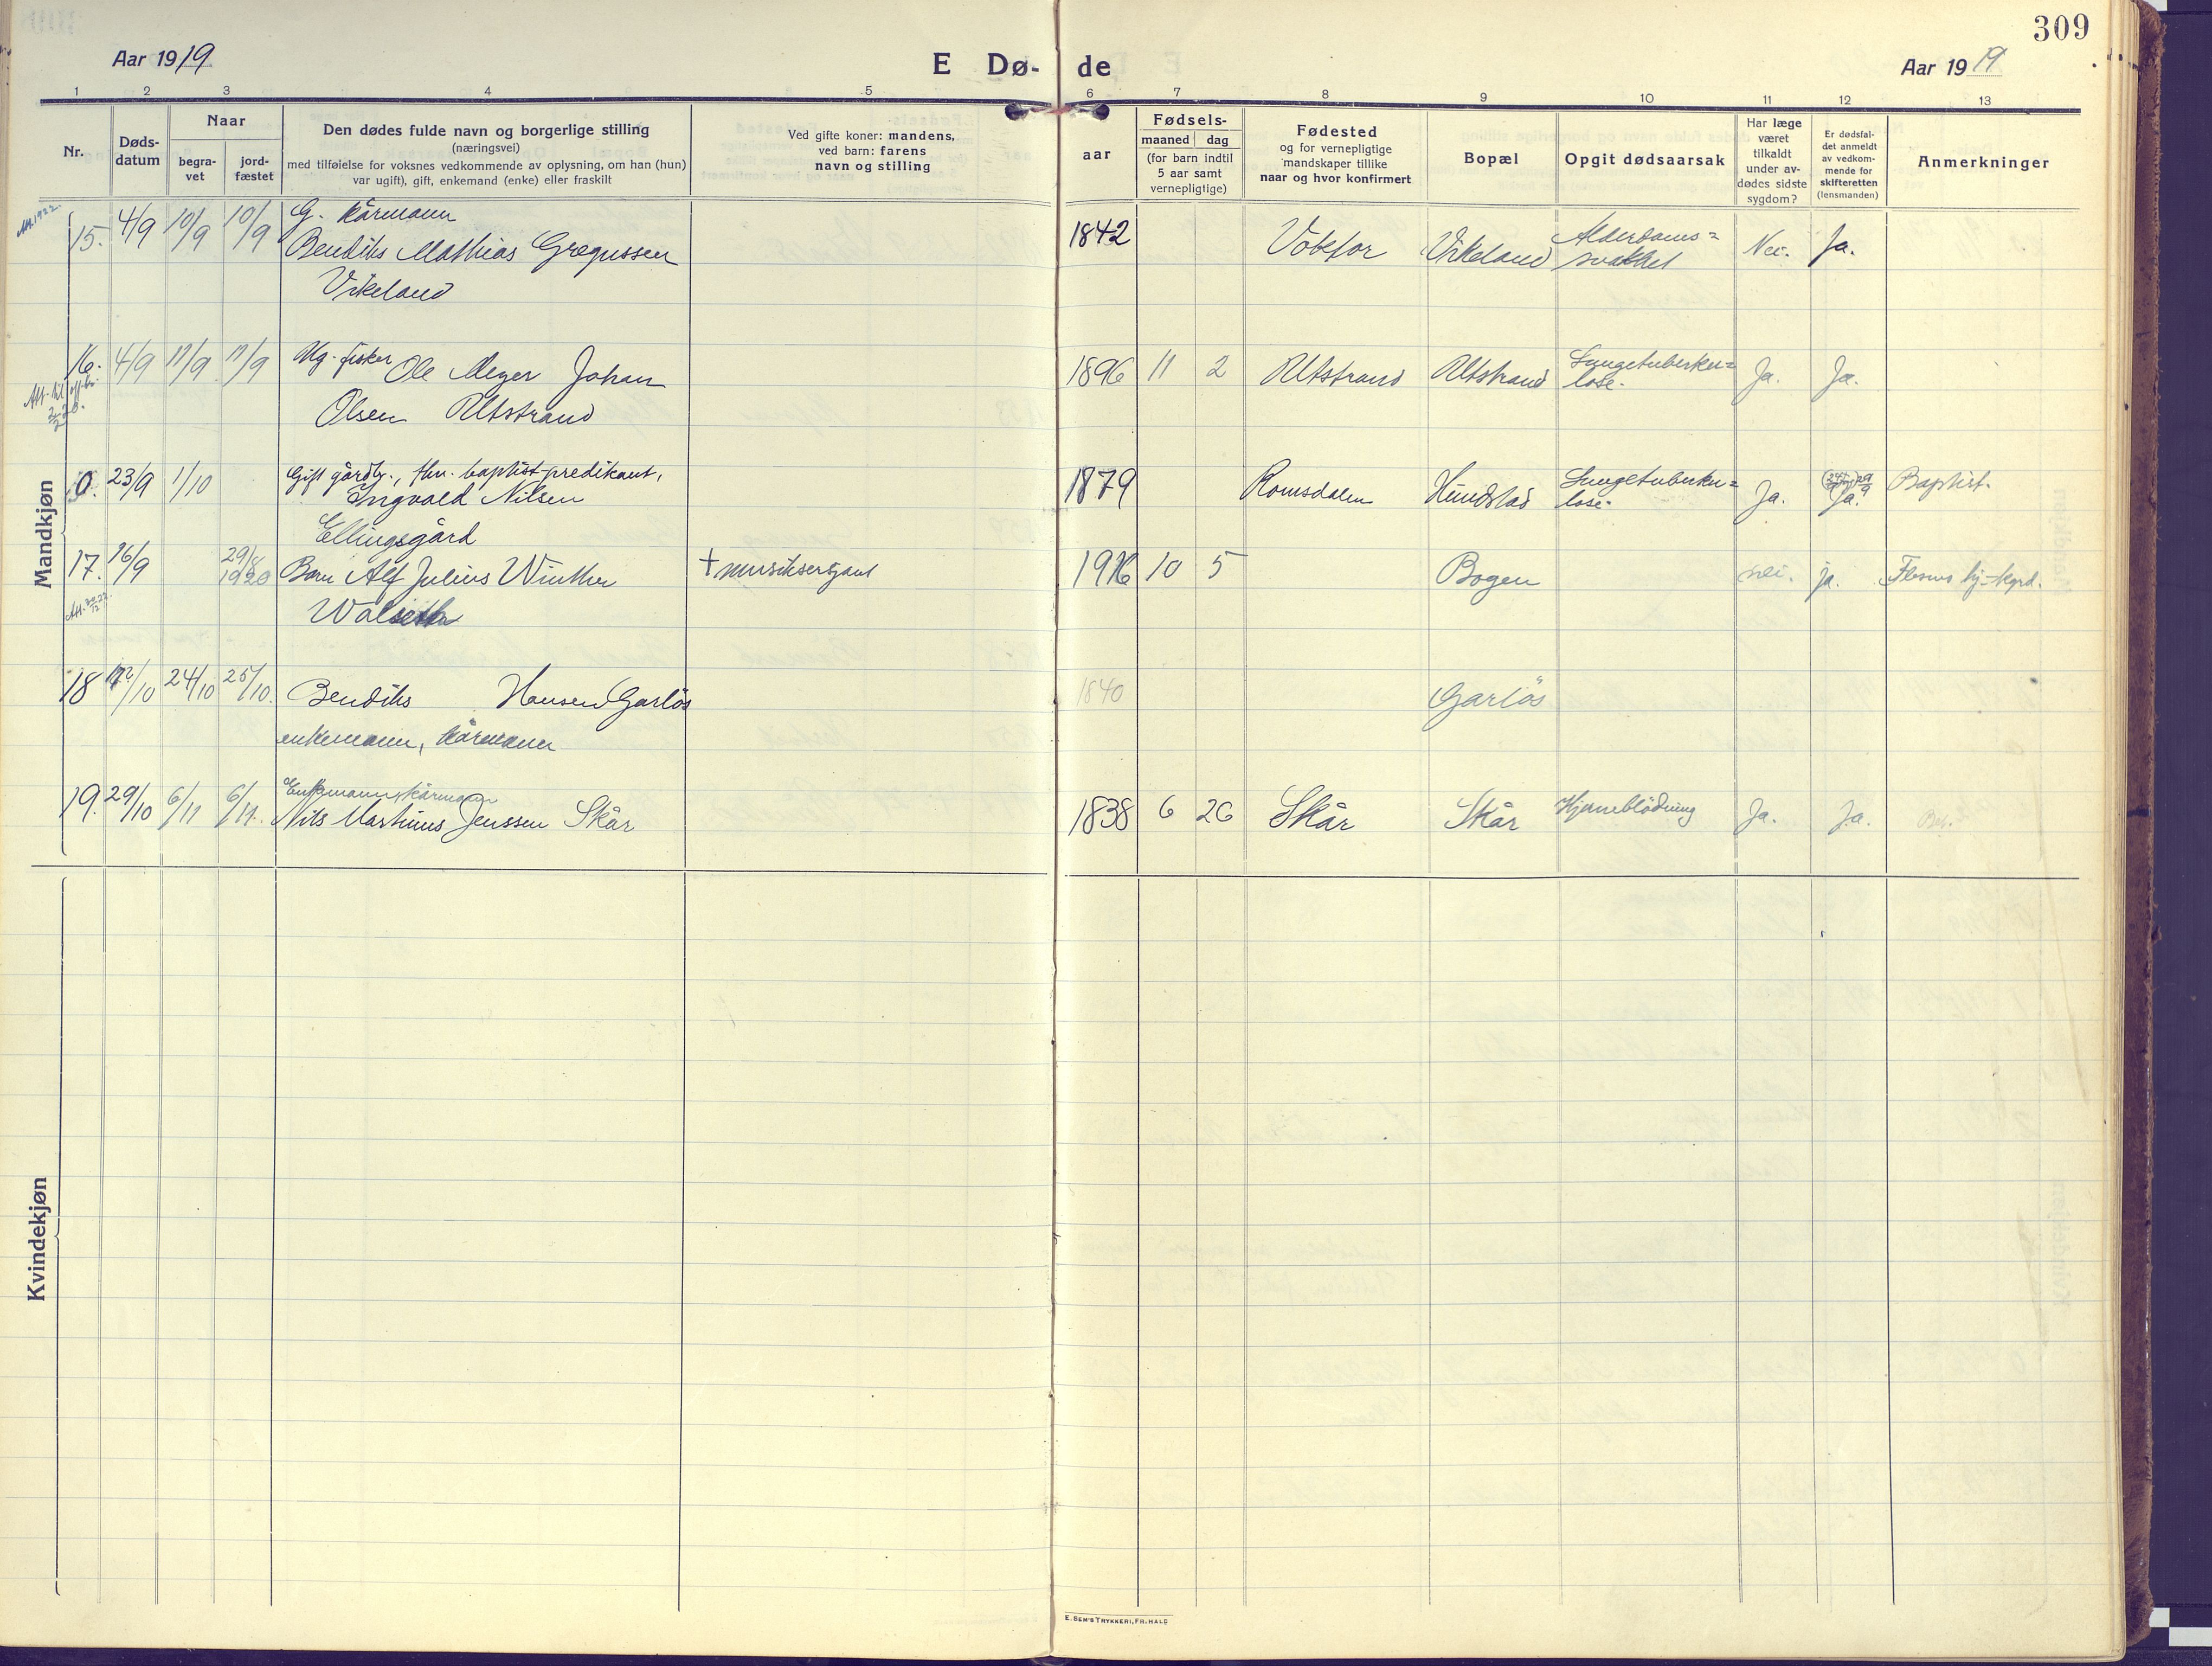 309
Aar 1919 E Dø- de Aar 1919
1 2 3 4 5 6 7 8 9 10 11 12 13
Nr.
Døds-
datum
Naar
begra-
vet
jord-
fæstet
Den dødes fulde navn og borgerlige stilling
(næringsvei)
med tilføielse for voksnes vedkommende av oplysning, om han (hun)
var ugift), gift, enkemand (enke) eller fraskilt
Ved gifte koner: mandens,
ved barn: farens
navn og stilling
Fødsels-
aar
maaned dag
(for barn indtil
5 aar samt
vernepligtige)
Fødested
og for vernepligtige
mandskaper tillike
naar og hvor konfirmert
Bopæl
Opgit dødsaarsak
Har læge
været
tilkaldt
under av-
dødes sidste
sygdom?
Er dødsfal-
det anmeldt
av vedkom-
mende for
skifteretten
(lensmanden)
Anmerkninger
Mandkjøn
G. kårmann
15. 4/9 10/9 10/9 Bendiks Mathias Gregussen 1842 Votefor Vikeland Alderdoms=
Vikeland svakhet Nei. Ja.
16. 4/9 17/9 17/9 Ug. fisker Ole Meyer Johan 1896 11 2 Altstrand Altstrand Lungetuberku=
Olsen Altstrand lose. Ja. Ja.
0. 23/9 1/10 Gift gårdbr., fhv. baptist-predikant, 1879 Romsdalen Hundstad Lungetuberku=
Ingvald Nilsen lose. Ja. Ja. Baptist.
Ellingsgård
17. 16/9 29/8 1920 Barn Alf Julius Winther + musiksersjant 1916 10 5 Bogen nei. ja.
Walseth
18 /10 24/10 25/10. Bendiks Hansen Garlös 1840 Garlös
enkemann, kårmann
Enkemann kårmann
19. 29/10 6/11 6/11. Nils Martinus Jenssen Skår 1838 6 26 Skår Skår Hjerneblödning Ja. Ja.
Kvindekjøn
E. SEM'S TRYKKERI, FR.HALD